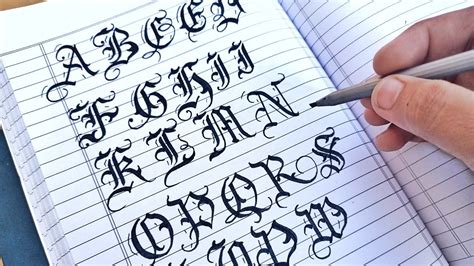 A B C D E
F G H I J
K L M N
O P Q R S
T U V W